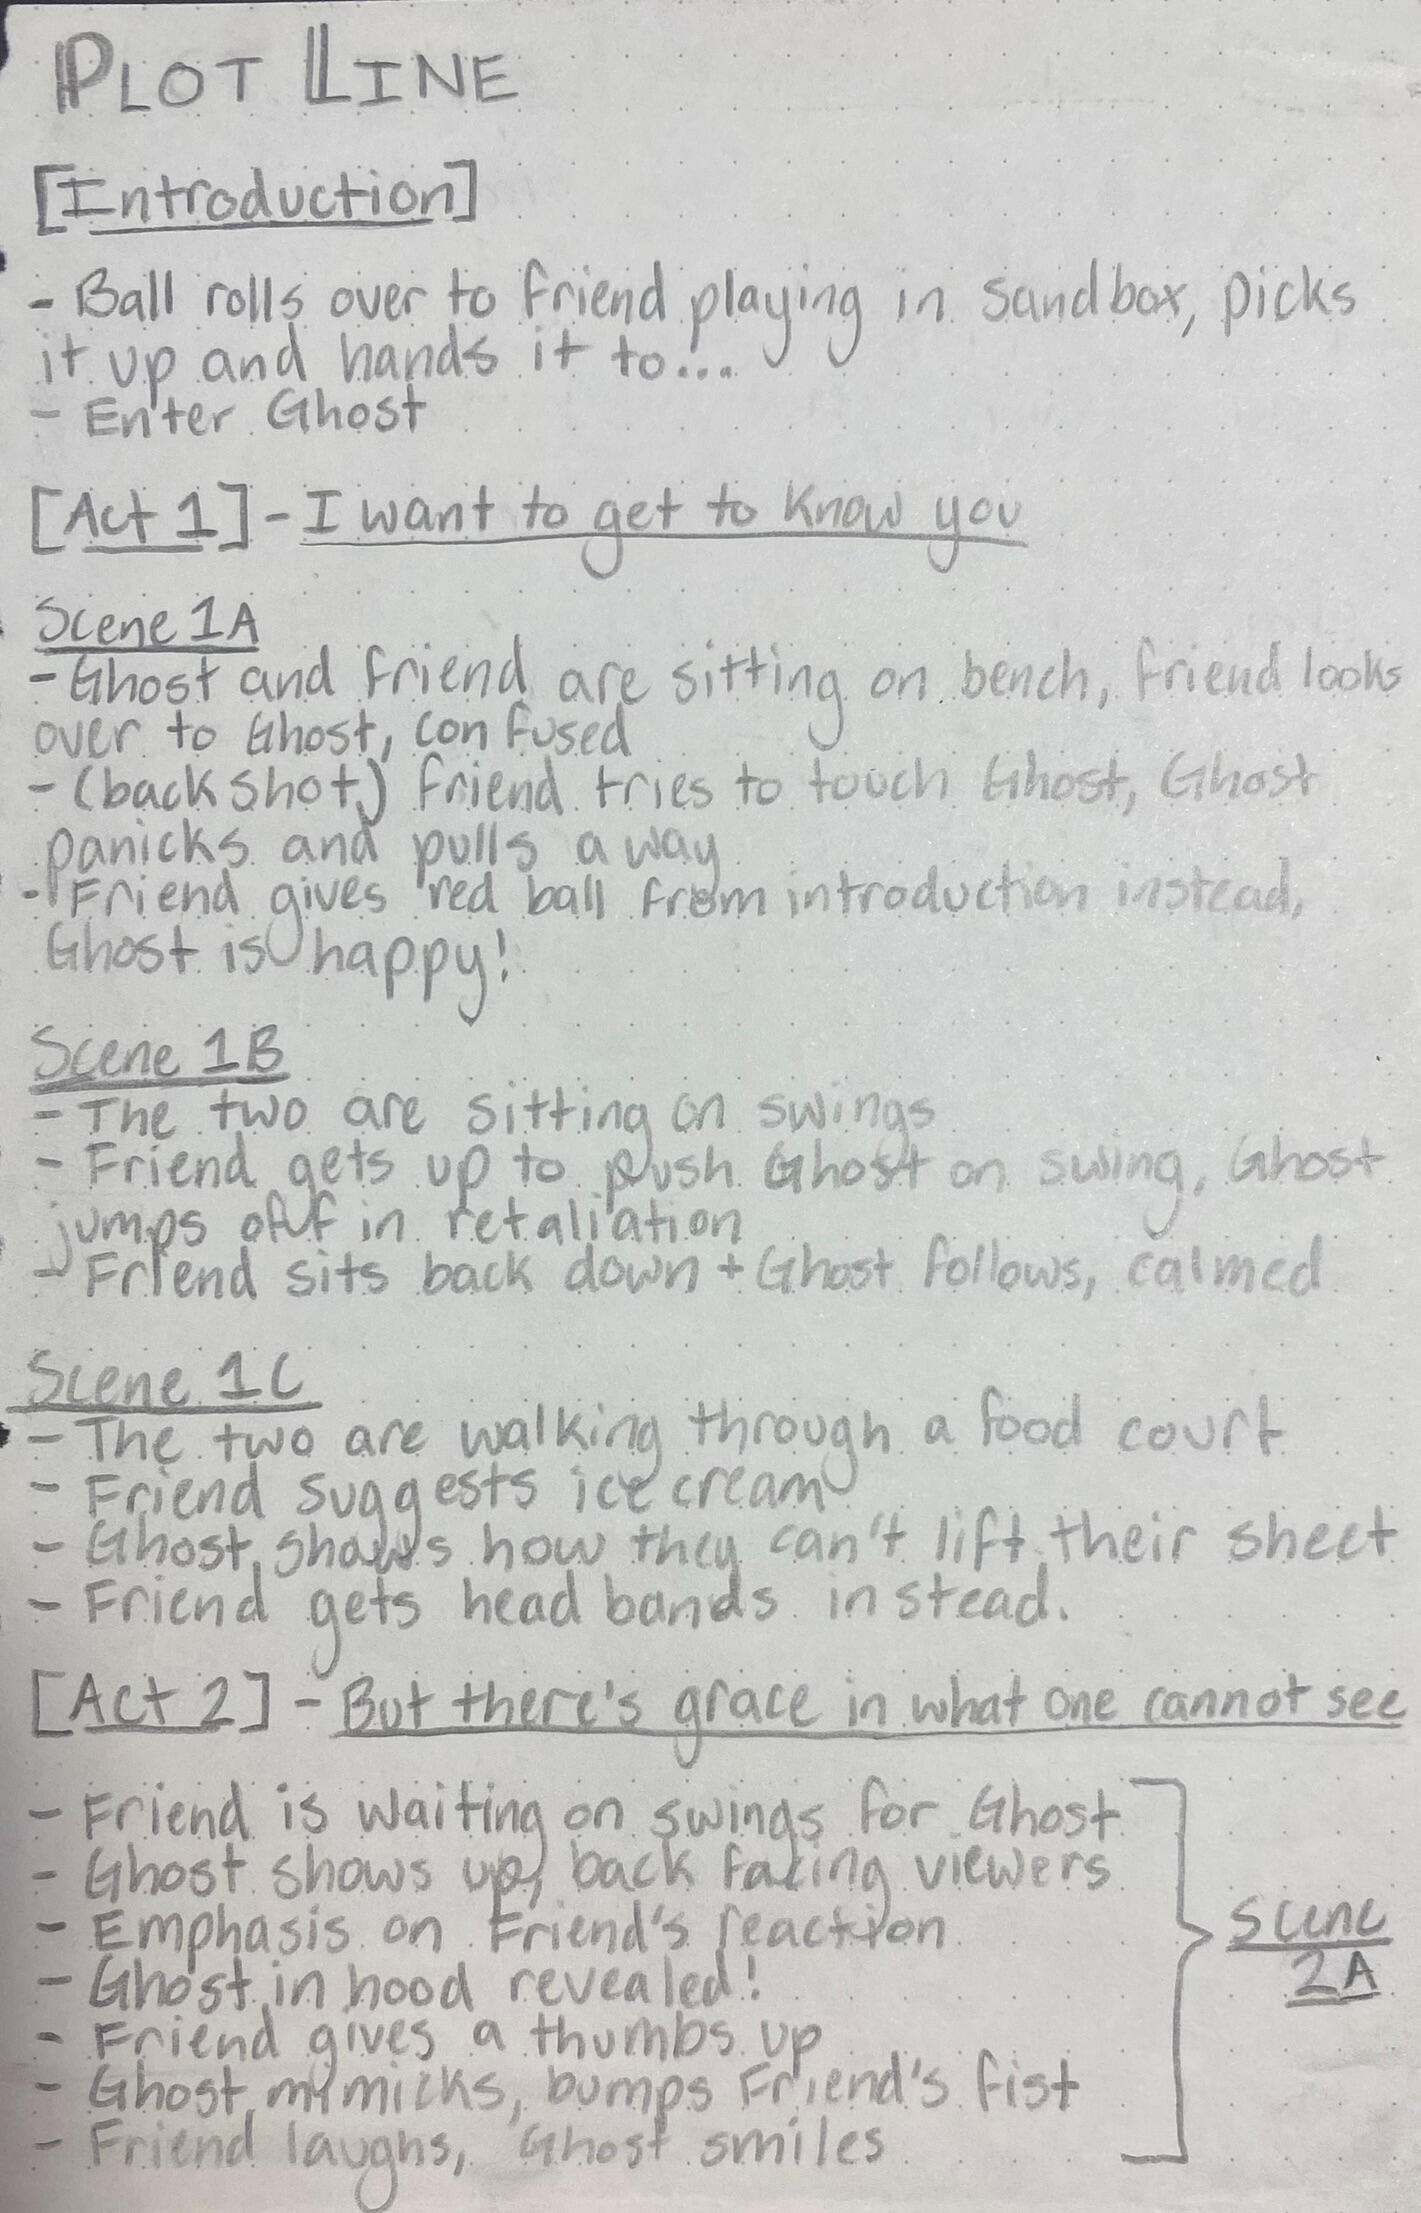 PLOT LINE
[Introduction]
- Ball rolls over to friend playing in sandbox, picks
it up and hands it to...
- Enter Ghost
[Act 1] - I want to get to know you
Scene 1A
- Ghost and friend are sitting on bench, friend looks
over to Ghost, confused
- (back shot) friend tries to touch Ghost, Ghost
panicks and pulls away
- Friend gives red ball from introduction instead,
Ghost is happy!
Scene 1B
- The two are sitting on swings
- Friend gets up to push Ghost on swing, Ghost
jumps off in retaliation
- Friend sits back down + Ghost follows, calmed
Scene 1C
- The two are walking through a food court
- Friend suggests ice cream
- Ghost shows how they can't lift their sheet
- Friend gets head bands instead.
[Act 2] - But there's grace in what one cannot see
- Friend is waiting on swings for Ghost
- Ghost shows up, back facing viewers
- Emphasis on Friend's reaction
- Ghost in hood revealed!
- Friend gives a thumbs up
- Ghost mimicks, bumps Friend's fist
- Friend laughs, Ghost smiles
Scene
2A